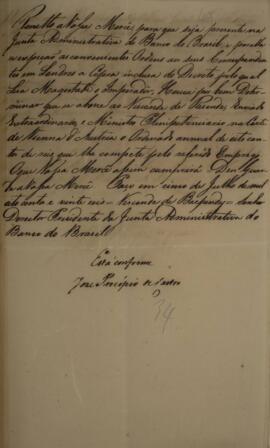 Remetto a Vossa Mercê para que seja presente na
Junta Administrativa do Banco do Brasil, e por ella
se expeção as convenientes Ordens ao seus Correspondentes
em Londres a Copia inclusa do Decreto pelo qual
Sua Magestade o Imperador, Houve por bem Deter-
minar que se abone ao Visconde de Rezende, Enviado
Extraordinario, e Ministro Plenipotenciario na Corte
de Vienna d'Austria o Ordenado annual de oito con
tos de reis que lhe compete pelo referido Emprego
O que Vossa Mercê assim cumprirá = Deos Guar-
de a Vossa Mercê Paço em cinco de Julho de mil
oito centos e vinte seis = Visconde de Baependy = Senhor
Director Presidente da Junta Administrativa do
Banco do Brasil
Está conforme
José Procopio de Castro
34